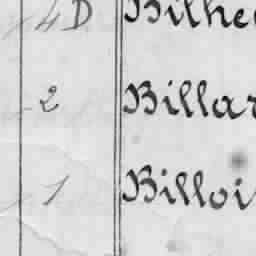 4D Bilhe
2 Billar
1 Billoi